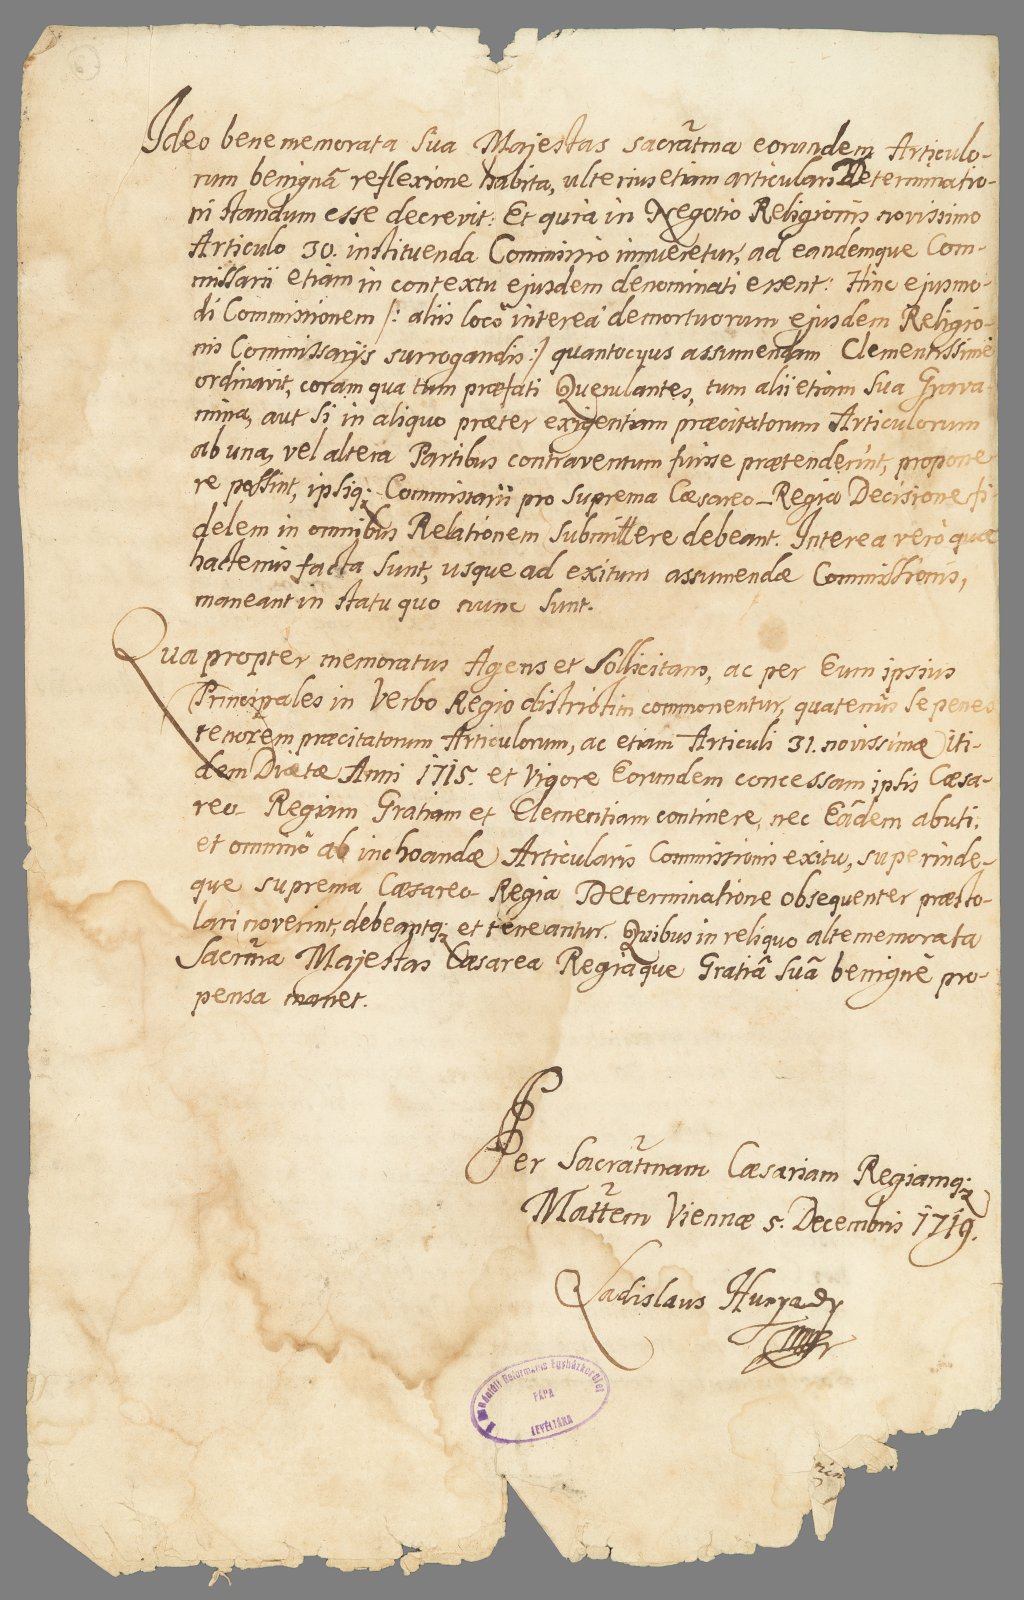 Ideo bene memorata Sua Majestas sacrãtma eorundem Articulo-
rum benignâ reflexione habita, ulterius etiam articulari Determinatio-
ni standum esse decrevit: Et quia in Negotio Religionis novissimo
Articulo 30. instituenda Commissio innueretur, ad eandemque Com-
missarii etiam in contextu ejusdem denominati essent: Hinc ejusmo-
di Commissionem /: aliis locô interea demortuorum ejusdem Religio-
nis Commissarÿs surrogandis :/ quantocyus assumendam Clementissime
ordinavit, coram qua tum præfati Querulantes, tum alii etiam sua Grava-
mina, aut si in aliquo præter exigentiam præcitatorum Articulorum
ab una, vel altera Partibus contraventum fuisse prætenderint, propone-
re possint, ipsiq; Commissarii pro suprema Cæsareo-Regia Decisione fi-
delem in omnibus Relationem submittere debeant. Interea verò quæ
hactenus facta sunt, usque ad exitum assumendæ Commissionis,
maneant in statu quo nunc sunt.
Quapropter memoratus Agens et Sollicitans, ac per Eum ipsius
Principales in Verbo Regio districtim commonentur, quatenus se penes
tenorem præcitatorum Articulorum, ac etiam Articuli 31. novissimæ iti-
dem Diætæ Anni 1715. et vigore Eorundem concessam ipsis Cæsa-
reo-Regiam Gratiam et Clementiam continere, nec Eâdem abuti;
et omninò ab inchoandæ Articularis Commissionis exitu, superinde-
que suprema Cæsareo-Regia Determinatione obsequenter præsto-
lari noverint, debeantq; et teneantur. Quibus in reliquo altememorata
Sacrm̃a Majestas Cæsarea Regiaque Gratiâ suâ benignè pro-
pensa manet.
Per Sacrãtmam Cæsariam Regiamq;
Mattem Viennæ 5. Decembris 1719.
Ladislaus Hunyady
mpr
A Dunántúli Református Egyházkerület
PÁPA
LEVÉLTÁRA